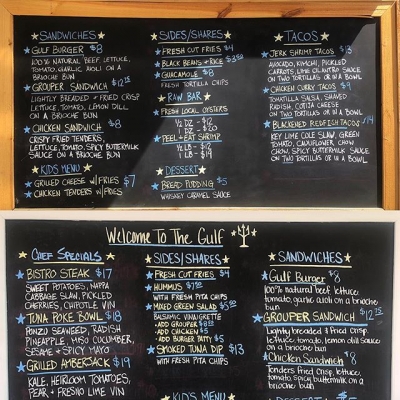 SANDWICHES
GULF BURGER $8
100% NATURAL BEEF, LETTUCE,
TOMATO, GARLIC AIOLI ON A
BRIOCHE BUN
GROUPER SANDWICH $12.75
LIGHTLY BREADED + FRIED CRISP
LETTUCE, TOMATO, LEMON DILL,
ON A BRIOCHE BUN
CHICKEN SANDWICH $8
CRISPY FRIED TENDERS,
LETTUCE, TOMATO, SPICY BUTTERMILK
SAUCE ON A BRIOCHE BUN
KIDS MENU
GRILLED CHEESE W/FRIES $7
CHICKEN TENDERS W/FRIES
SIDES/SHARES
FRESH CUT FRIES $4
BLACK BEANS + RICE
GUACAMOLE $8
FRESH TORTILLA CHIPS
RAW BAR
FRESH LOCAL OYSTERS
1/2 DZ - $12
DZ - $20
PEEL + EAT SHRIMP
1/2 LB - $12
1 LB - $19
DESSERT
BREAD PUDDING $5
WHISKEY CARAMEL SAUCE
TACOS
JERK SHRIMP TACOS $13
AVOCADO, KIMCHI, PICKLED
CARROTS, LIME CILANTRO SAUCE
ON TWO TORTILLAS OR IN A BOWL
CHICKEN CURRY TACOS $9
TOMATILLA SALSA, SHAVED
RADISH, COTIJA CHEESE
ON TWO TORTILLAS OR IN A BOWL
BLACKENED REDFISH TACOS $14
KEY LIME COLE SLAW, GREEN
TOMATO, CAULIFLOWER CHOW
CHOW, SPICY BUTTERMILK SAUCE
ON TWO TORTILLAS OR IN A BOWL
Welcome To The Gulf
CHEF SPECIALS
BISTRO STEAK $17
SWEET POTATOES, NAPPA
CABBAGE SLAW, PICKLED
CHERRIES, CHIPOTLE VIN
TUNA POKE BOWL $18
PONZU SEAWEED, RADISH
PINEAPPLE, MISO CUCUMBER,
SESAME + SPICY MAYO
GRILLED AMBERJACK $19
KALE, HEIRLOOM TOMATOES,
PEAR + FRESNO LIME VIN
SIDES/SHARES
FRESH CUT FRIES $4
HUMMUS
WITH FRESH PITA CHIPS
MIXED GREEN SALAD
BALSAMIC VINNAIGRETTE
- ADD GROUPER
- ADD CHICKEN $5
- ADD BURGER PATTY $5
SMOKED TUNA DIP $13
WITH FRESH PITA CHIPS
KIDS MENU
SANDWICHES
Gulf Burger $8
100% natural beef, lettuce
tomato, garlic aioli on a brioche
bun
GROUPER SANDWICH
Lightly breaded + fried crisp
lettuce, tomato, lemon dill sauce
on a brioche bun
Chicken Sandwich $8
Tenders fried crisp, lettuce,
tomato, spicy buttermilk on a
brioche bun